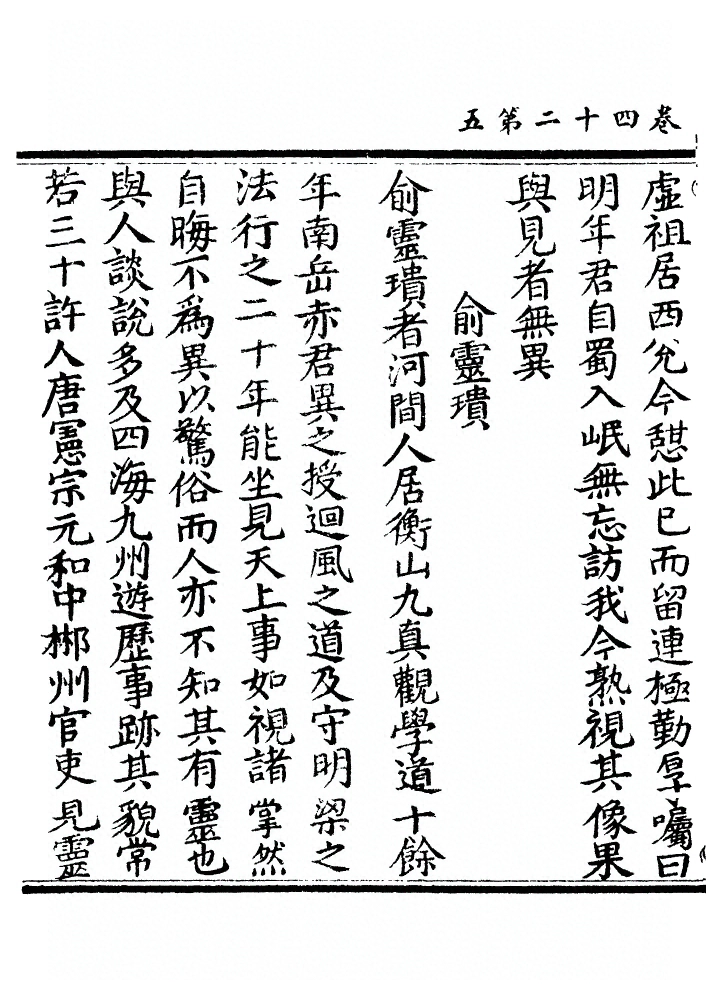 卷四十二第五
虛祖居西兊今憇此已而留連極勤厚囑曰
明年君自蜀入岷無忘訪我今熟視其像果
與見者無異
俞靈璝
俞靈璝者河間人居衡山九真觀學道十餘
年南岳赤君異之授迴風之道及守明梁之
法行之二十年能坐見天上事如視諸掌然
自晦不為異以驚俗而人亦不知其有靈也
與人談說多及四海九州遊歷事跡其貌常
若三十許人唐憲宗元和中郴州官吏見靈